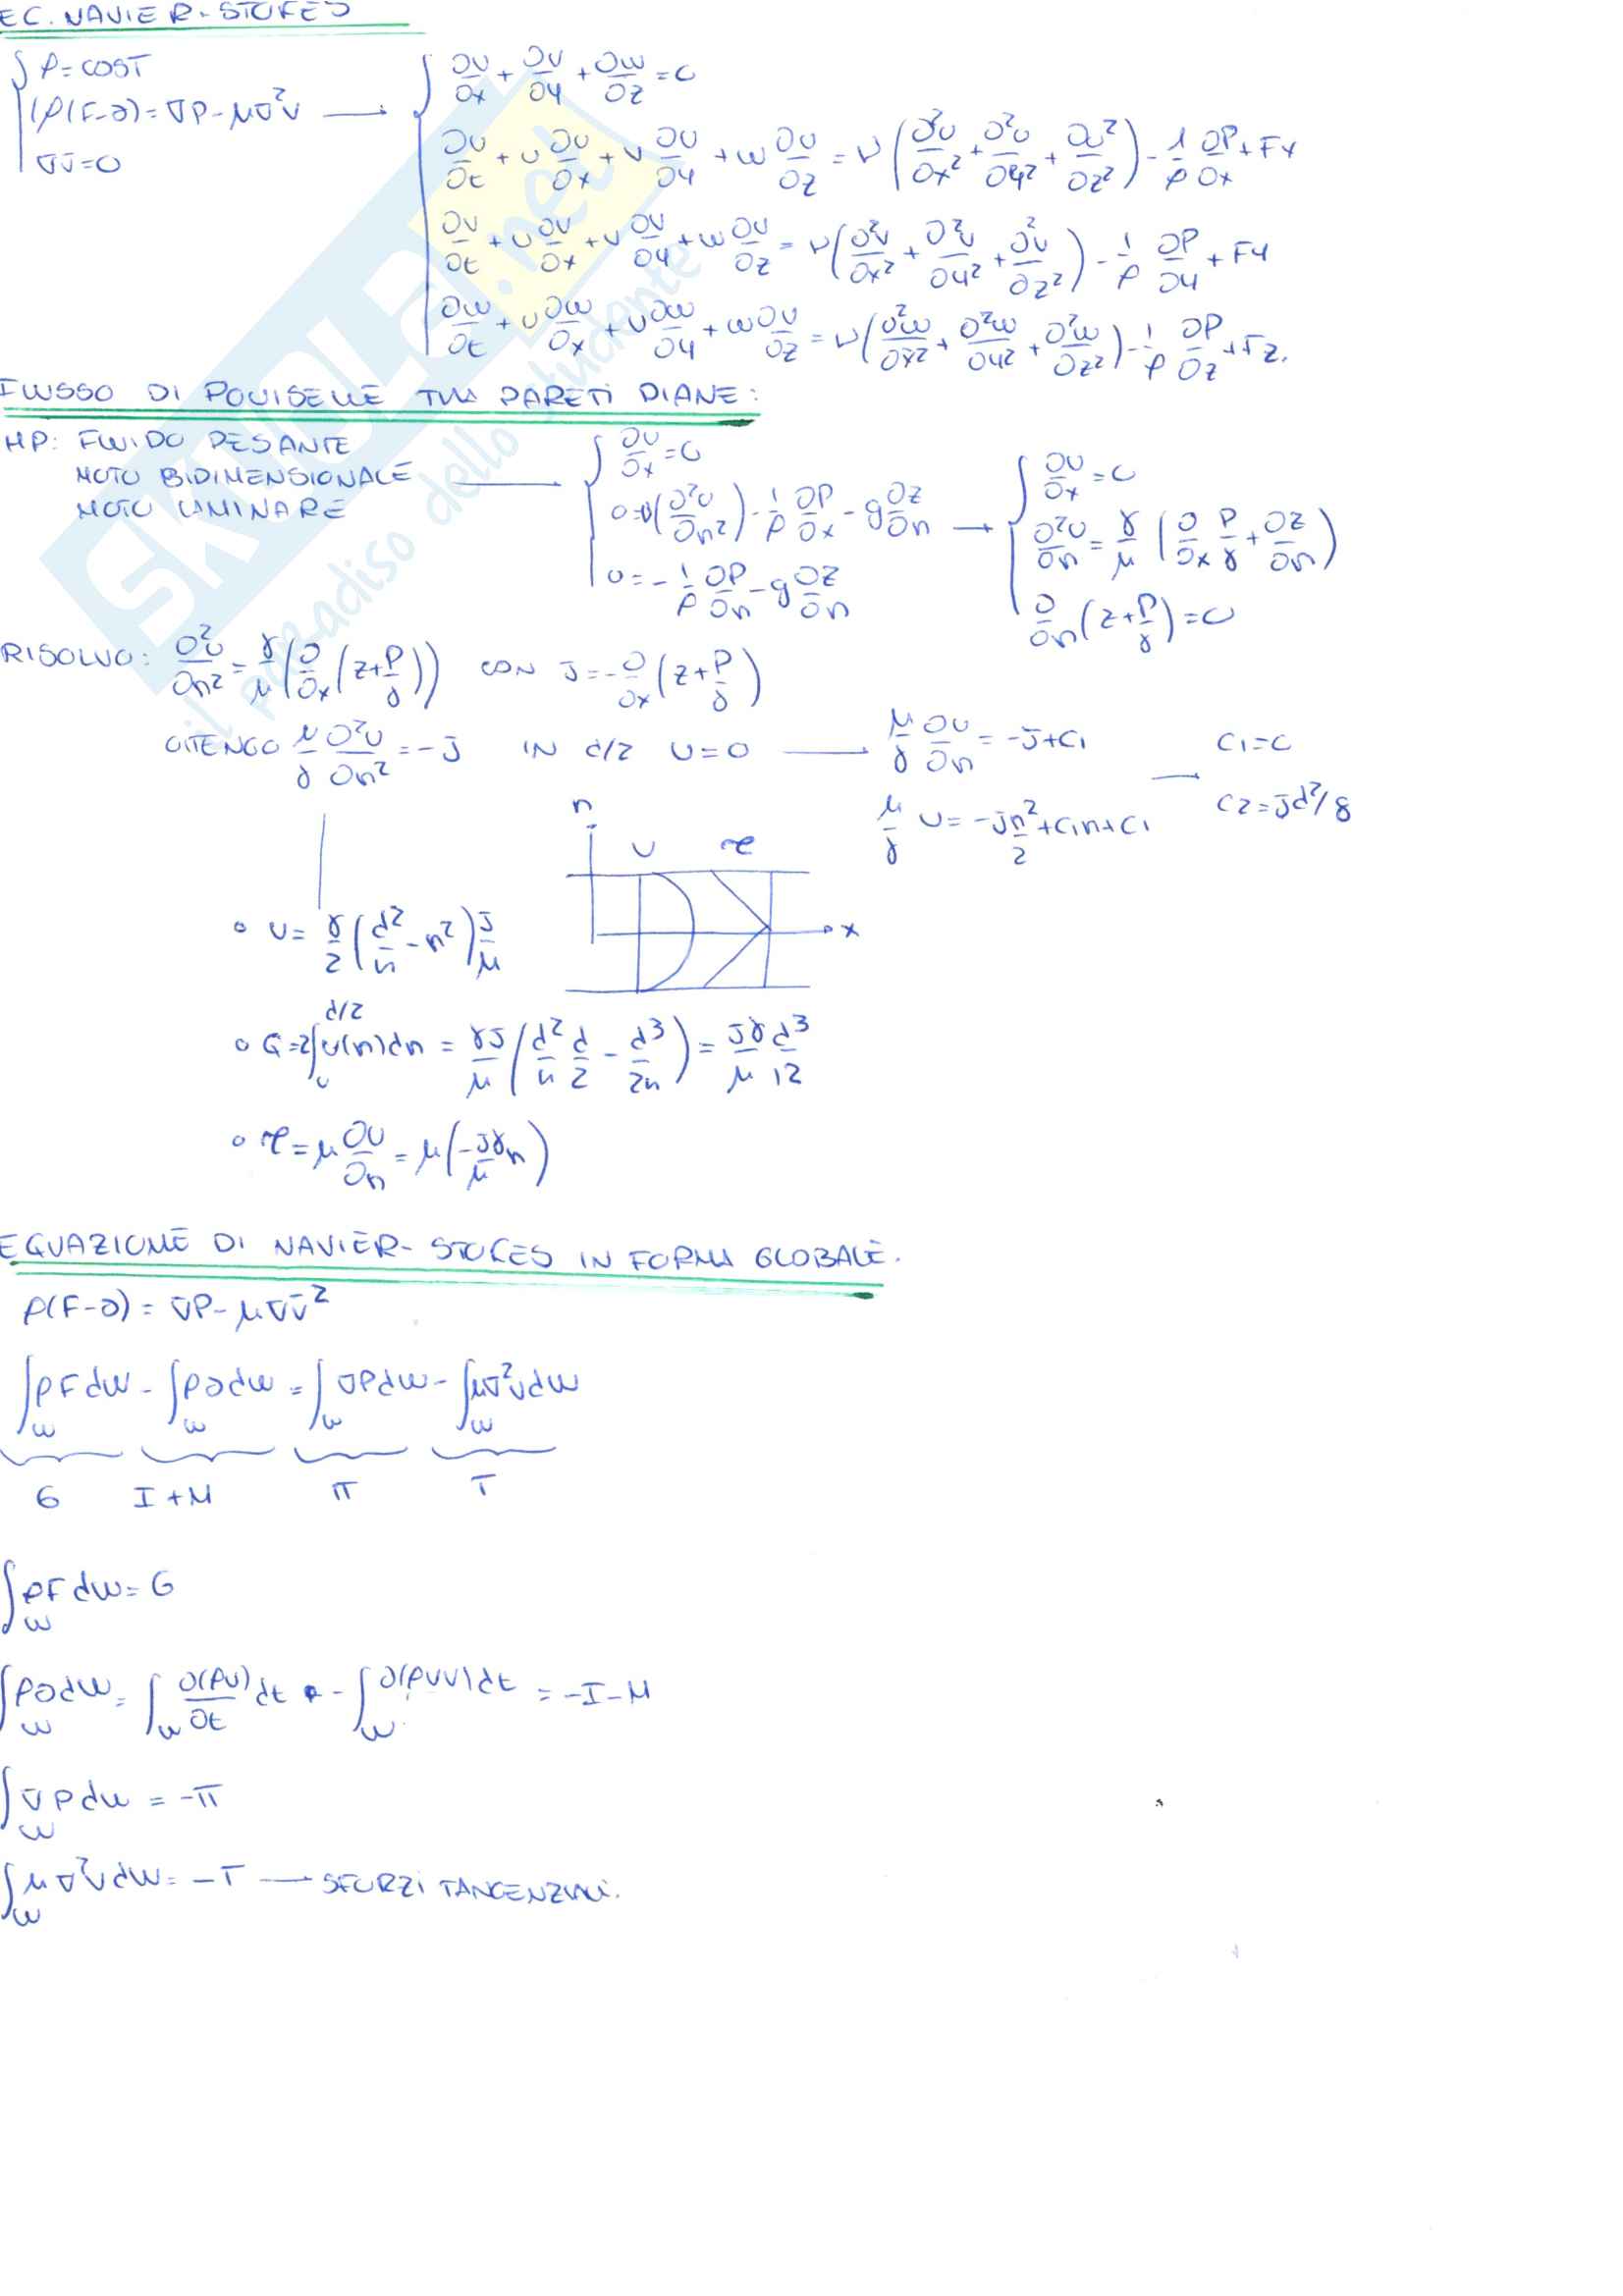 EC. NAVIER-STOKES
ρ=COST
(ρ(F-a)=∇P-μ∇²v →
∇v̄=0
∂u/∂x + ∂v/∂y + ∂w/∂z = 0
∂u/∂t + u ∂u/∂x + v ∂u/∂y + w ∂u/∂z = ν(∂²u/∂x² + ∂²u/∂y² + ∂u²/∂z²) - 1/ρ ∂P/∂x + Fx
∂v/∂t + u ∂v/∂x + v ∂v/∂y + w ∂v/∂z = ν(∂²v/∂x² + ∂²v/∂y² + ∂²v/∂z²) - 1/ρ ∂P/∂y + Fy
∂w/∂t + u ∂w/∂x + v ∂w/∂y + w ∂v/∂z = ν(∂²w/∂x² + ∂²w/∂y² + ∂²w/∂z²) - 1/ρ ∂P/∂z + Fz.
FLUSSO DI POUISELLE TRA PARETI PIANE:
HP: FLUIDO PESANTE
MOTO BIDIMENSIONALE →
MOTO LAMINARE
∂u/∂x = 0
0=ν(∂²u/∂n²) - 1/ρ ∂P/∂x - g ∂z/∂n →
0 = - 1/ρ ∂P/∂n - g ∂z/∂n
∂u/∂x = 0
∂²u/∂n = γ/μ (∂/∂x P/γ + ∂z/∂n)
∂/∂n (z+P/γ) = 0
RISOLVO: ∂²u/∂n² = γ/μ (∂/∂x (z+P/γ)) CON J = -∂/∂x (z+P/γ)
OTTENGO μ/γ ∂²u/∂n² = -J IN d/2 U=0 → μ/γ ∂u/∂n = -J+C1 → C1=0
μ/γ u = -J n²/2 + C1n + C1 C2=Jd²/8
n
u τ
x
° u = γ/2 (d²/4 - n²) J/μ
° Q = 2∫₀^{d/2} u(n)dn = γJ/μ (d²/4 d/2 - d³/24) = Jγ/μ d³/12
° τ = μ ∂u/∂n = μ(-Jγ/μ n)
EQUAZIONE DI NAVIER-STOCES IN FORMA GLOBALE.
ρ(F-a) = ∇P - μ∇v̄²
∫_W ρF dW - ∫_W ρa dW = ∫_W ∇P dW - ∫_W μ∇²v dW
G I+M π T
∫_W ρF dW = G
∫_W ρa dW = ∫_W ∂(ρv)/∂t dt - ∫_W ∂(ρvv) dt = -I-M
∫_W ∇P dW = -π
∫_W μ∇²v dW = -T → SFORZI TANGENZIALI.
SKUOLA.net
il paradiso dello studente